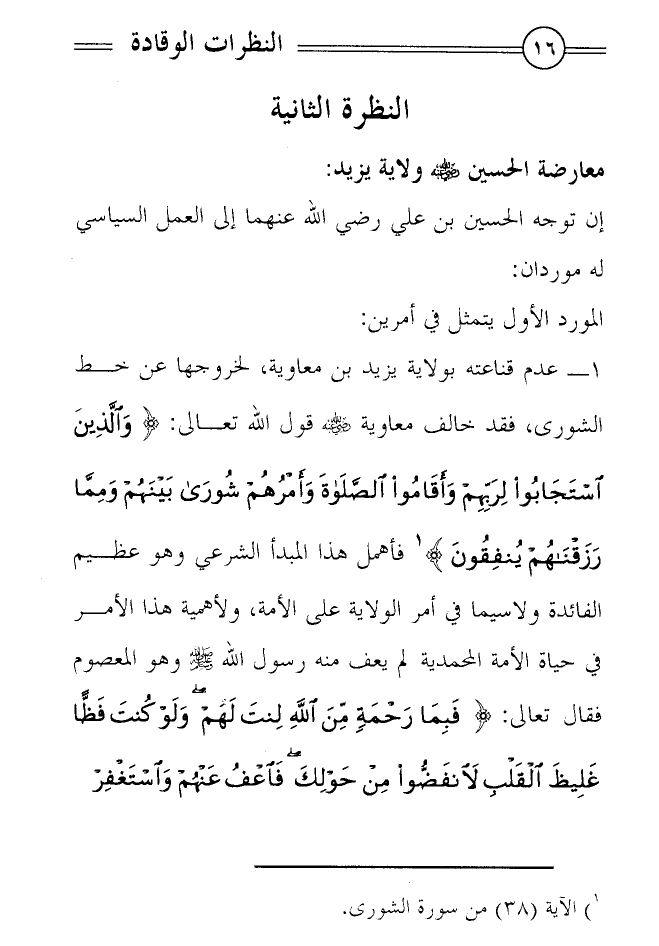 ١٦ النظرات الوقادة
النظرة الثانية
معارضة الحسين ﷺ ولاية يزيد:
إن توجه الحسين بن علي رضي الله عنهما إلى العمل السياسي
له موردان:
المورد الأول يتمثل في أمرين:
١ــ عدم قناعته بولاية يزيد بن معاوية، لخروجها عن خـــط
الشورى، فقد خالف معاوية قول الله تعـــالى: ﴿ وَٱلَّذِينَ
ٱسْتَجَابُوا۟ لِرَبِّهِمْ وَأَقَامُوا۟ ٱلصَّلَوٰةَ وَأَمْرُهُمْ شُورَىٰ بَيْنَهُمْ وَمِمَّا
رَزَقْنَـٰهُمْ يُنفِقُونَ ﴾١ فأهمل هذا المبدأ الشرعي وهو عظـــيم
الفائدة ولاسيما في أمر الولاية على الأمة، ولأهمية هذا الأمـــر
في حياة الأمة المحمدية لم يعف منه رسول الله ﷺ وهو المعصوم
فقال تعالى: ﴿ فَبِمَا رَحْمَةٍ مِّنَ ٱللَّهِ لِنتَ لَهُمْ ۖ وَلَوْ كُنتَ فَظًّا
غَلِيظَ ٱلْقَلْبِ لَٱنفَضُّوا۟ مِنْ حَوْلِكَ ۖ فَٱعْفُ عَنْهُمْ وَٱسْتَغْفِرْ
١) الآية (٣٨) من سورة الشورى.